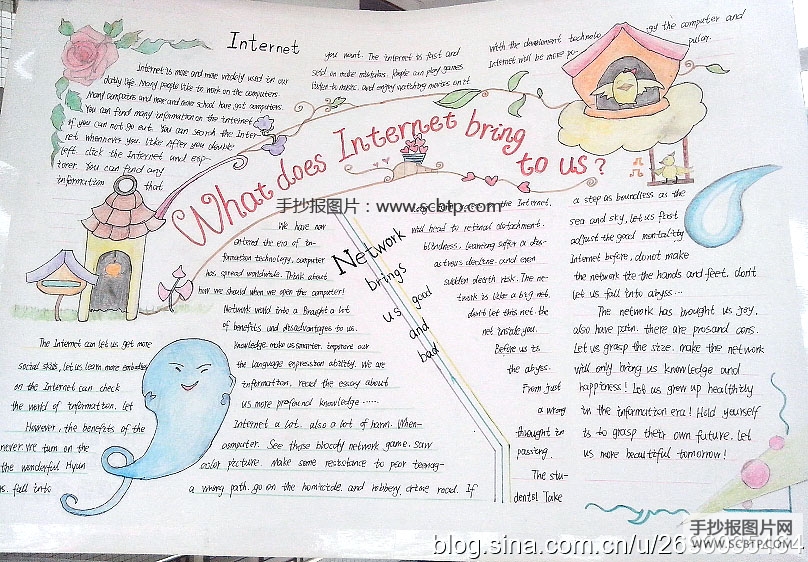 Internet
Internet is more and more widely used in our
daily life. Many people like to work on the computers
Many computers and more and more school have got computers.
You can find many information on the internet
if you can not go out. You can search the Inter-
net whenever you like. After you double
left click the Internet and exp-
lorer. You can find any
information that
you want. The internet is fast and
seld on make mistakes. People can play games
listen to music, and enjoy watching movies on it
With the development technolo
gy the computer and
Internet will be more po-
pular.
What does Internet bring
to us?
手抄报图片：www.scbtp.com
We have now
entered the era of in-
formation technology, computer
has spread worldwide. Think about
how we should when we open the computer!
Network world into a Brought a lot
of benefits and disadvantages to us.
Knowledge make us smarter, improve our
the language expression ability. We are
information, read the essay about
us more profound knowledge ......
Internet a lot, also a lot of harm. When
computer. See those bloody network game, saw
color picture. Make some resistance to poor teenag-
a wrong path, go on the homicide, and robbery, crime road. If
The Internet can let us get more
social skills, let us learn more
on the Internet can check
the world of information, let
However, the benefits of the
never we turn on the
the wonderful
fall into
Network
brings
us good
and
bad
the Internet.
will head to retinal detachment,
blindness, learning suffer a dis-
astrous decline, and even
sudden death risk. The ne-
twork is like a big net,
don't let this net the
net inside you.
Before us is
the abyss.
From just
a wrong
thought in
passing.
The stu-
dents! Take
a step as boundless as the
sea and sky, let us first
adjust the good mentality
Internet before, do not make
the network tie the hands and feet, don't
let us fall into abyss...
The network has brought us joy,
also have pain, there are pros and cons.
Let us grasp the size, make the network
will only bring us knowledge and
happiness! Let us grow up healthily
in the information era! Hold yourself
is to grasp their own future, let
us more beautiful tomorrow!
手抄报图片网
WWW.SCBTP.COM